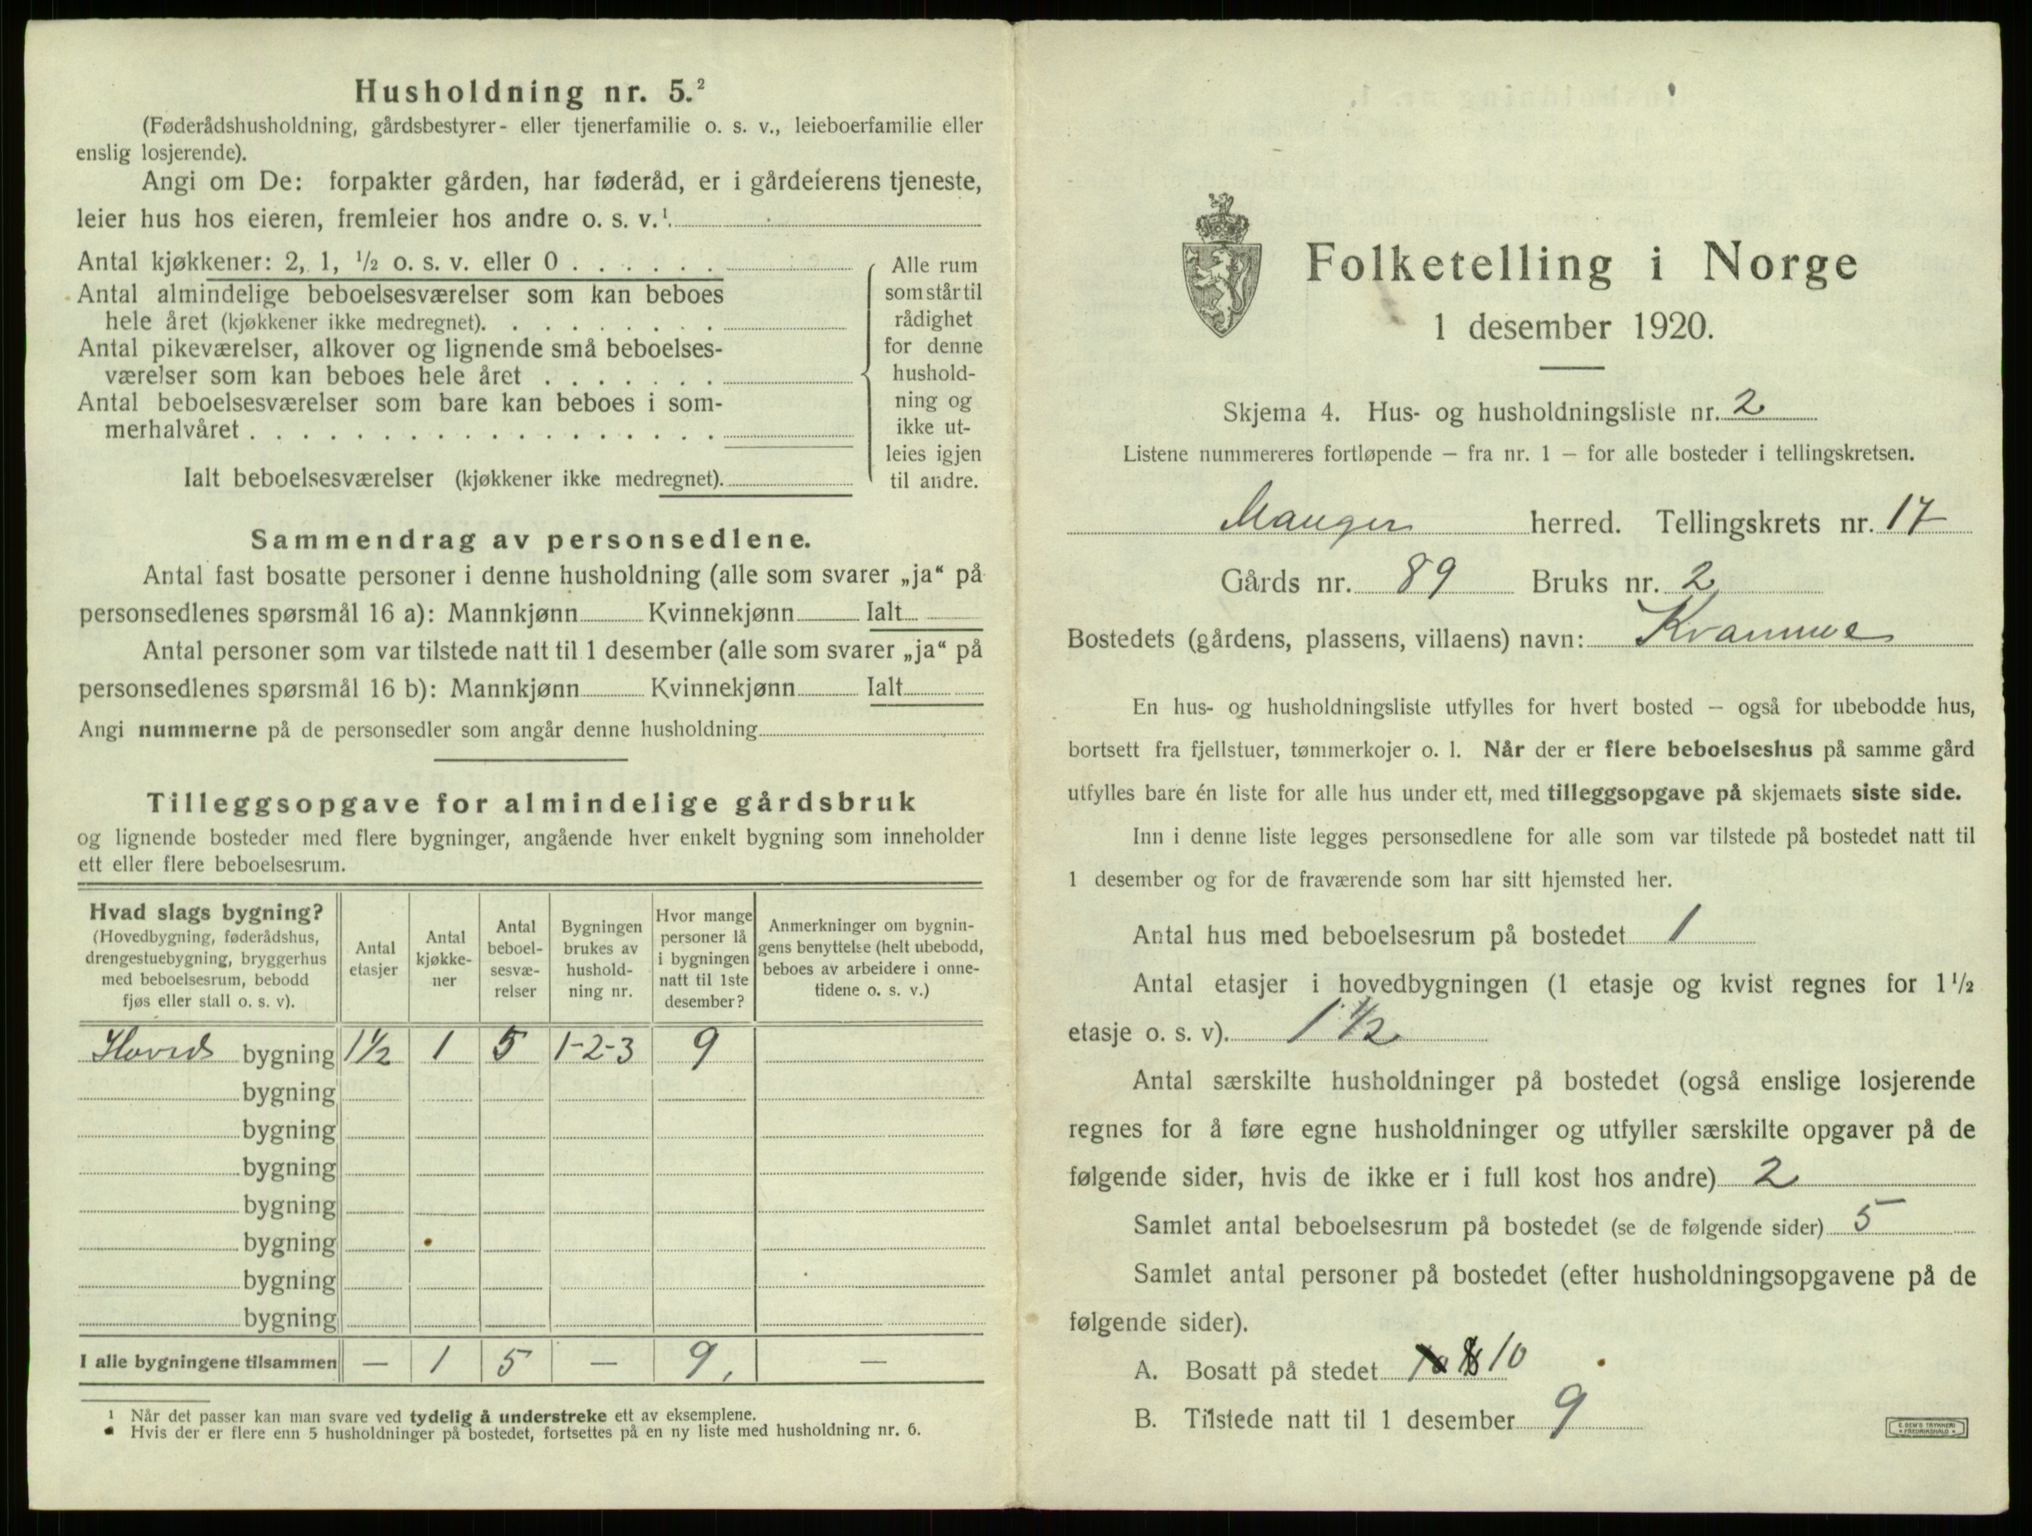 Husholdning nr. 5.²
(Føderådshusholdning, gårdsbestyrer- eller tjenerfamilie o. s. v., leieboerfamilie eller
enslig losjerende).
Angi om De: forpakter gården, har føderåd, er i gårdeierens tjeneste,
leier hus hos eieren, fremleier hos andre o. s. v.¹
Antal kjøkkener: 2, 1, ½ o. s. v. eller 0 . . . . . .
Antal almindelige beboelsesværelser som kan beboes
hele året (kjøkkener ikke medregnet). . . . . . . . .
Antal pikeværelser, alkover og lignende små beboelses-
værelser som kan beboes hele året . . . . . . .
Antal beboelsesværelser som bare kan beboes i som-
merhalvåret . . . . . . . . . . . . . . . . . .
Ialt beboelsesværelser (kjøkkener ikke medregnet).
Alle rum
som står til
rådighet
for denne
hushold-
ning og
ikke ut-
leies igjen
til andre.
Sammendrag av personsedlene.
Antal fast bosatte personer i denne husholdning (alle som svarer „ja“ på
personsedlenes spørsmål 16 a): Mannkjønn Kvinnekjønn Ialt
Antal personer som var tilstede natt til 1 desember (alle som svarer „ja“ på
personsedlenes spørsmål 16 b): Mannkjønn Kvinnekjønn Ialt
Angi nummerne på de personsedler som angår denne husholdning
Tilleggsopgave for almindelige gårdsbruk
og lignende bosteder med flere bygninger, angående hver enkelt bygning som inneholder
ett eller flere beboelsesrum.
Hvad slags bygning?
(Hovedbygning, føderådshus,
drengestuebygning, bryggerhus
med beboelsesrum, bebodd
fjøs eller stall o. s. v).
Antal
etasjer
Antal
kjøkke-
ner
Antal
beboel-
sesvæ-
relser
Bygningen
brukes av
hushold-
ning nr.
Hvor mange
personer lå
i bygningen
natt til 1ste
desember?
Anmerkninger om bygnin-
gens benyttelse (helt ubebodd,
beboes av arbeidere i onne-
tidene o. s. v.)
Hoveds bygning 1½ 1 5 1-2-3 9
bygning
bygning
bygning
bygning
bygning
bygning
bygning
I alle bygningene tilsammen — 1 5 — 9. —
¹ Når det passer kan man svare ved tydelig å understreke ett av eksemplene.
Hvis der er flere enn 5 husholdninger på bostedet, fortsettes på en ny liste med husholdning nr. 6.
Folketelling i Norge
1 desember 1920.
Skjema 4. Hus- og husholdningsliste nr. 2
Listene nummereres fortløpende – fra nr. 1 – for alle bosteder i tellingskretsen.
Manger herred. Tellingskrets nr. 17
Gårds nr. 89 Bruks nr. 2
Bostedets (gårdens, plassens, villaens) navn: Kvamme
En hus- og husholdningsliste utfylles for hvert bosted – også for ubebodde hus,
bortsett fra fjellstuer, tømmerkojer o. l. Når der er flere beboelseshus på samme gård
utfylles bare én liste for alle hus under ett, med tilleggsopgave på skjemaets siste side.
Inn i denne liste legges personsedlene for alle som var tilstede på bostedet natt til
1 desember og for de fraværende som har sitt hjemsted her.
Antal hus med beboelsesrum på bostedet 1
Antal etasjer i hovedbygningen (1 etasje og kvist regnes for 1½
etasje o. s. v). 1½
Antal særskilte husholdninger på bostedet (også enslige losjerende
regnes for å føre egne husholdninger og utfyller særskilte opgaver på de
følgende sider, hvis de ikke er i full kost hos andre) 2
Samlet antal beboelsesrum på bostedet (se de følgende sider) 5
Samlet antal personer på bostedet (efter husholdningsopgavene på de
følgende sider).
A. Bosatt på stedet 10
B. Tilstede natt til 1 desember 9
E. SEM'S TRYKKERI
FREDRIKSHALD